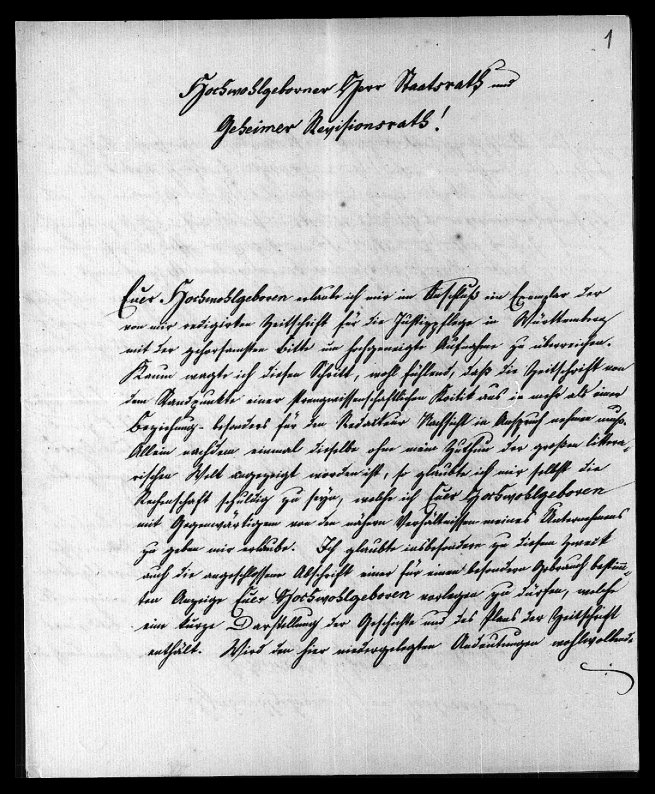 1
Hochwohlgeborner Herr Staatsrath und
Geheimer Revisionsrath!
Euer Hochwohlgeboren erlaube ich mir im Anschluß ein Exemplar der
von mir redigirten Zeitschrift für die Justizpflege in Württemberg
mit der gehorsamsten Bitte um hochgeneigte Aufnahme zu überreichen.
Kaum wagte ich diesen Schritt, wohl fühlend, daß die Zeitschrift von
dem Standpunkte einer strengwissenschaftlichen Kritik aus in mehr als einer
Beziehung - besonders für den Redakteur Nachsicht in Anspruch nehmen muß.
Allein nachdem einmal dieselbe ohne mein Zuthun der großen littera-
rischen Welt angezeigt worden ist, so glaubte ich mir selbst die
Rechenschaft schuldig zu seyn, welche ich Euer Hochwohlgeboren
mit Gegenwärtigem von den nähern Verhältnissen meines Unternehmens
zu geben mir erlaube. Ich glaubte insbesondere zu diesem Zweck
auch die angeschlossene Abschrift einer für einen besondern Gebrauch bestimm-
ten Anzeige Euer Hochwohlgeboren vorlegen zu dürfen, welche
eine kurze Darstellung der Geschichte und des Plans der Zeitschrift
enthält. Wird den hier niedergelegten Andeutungen wohlwollende